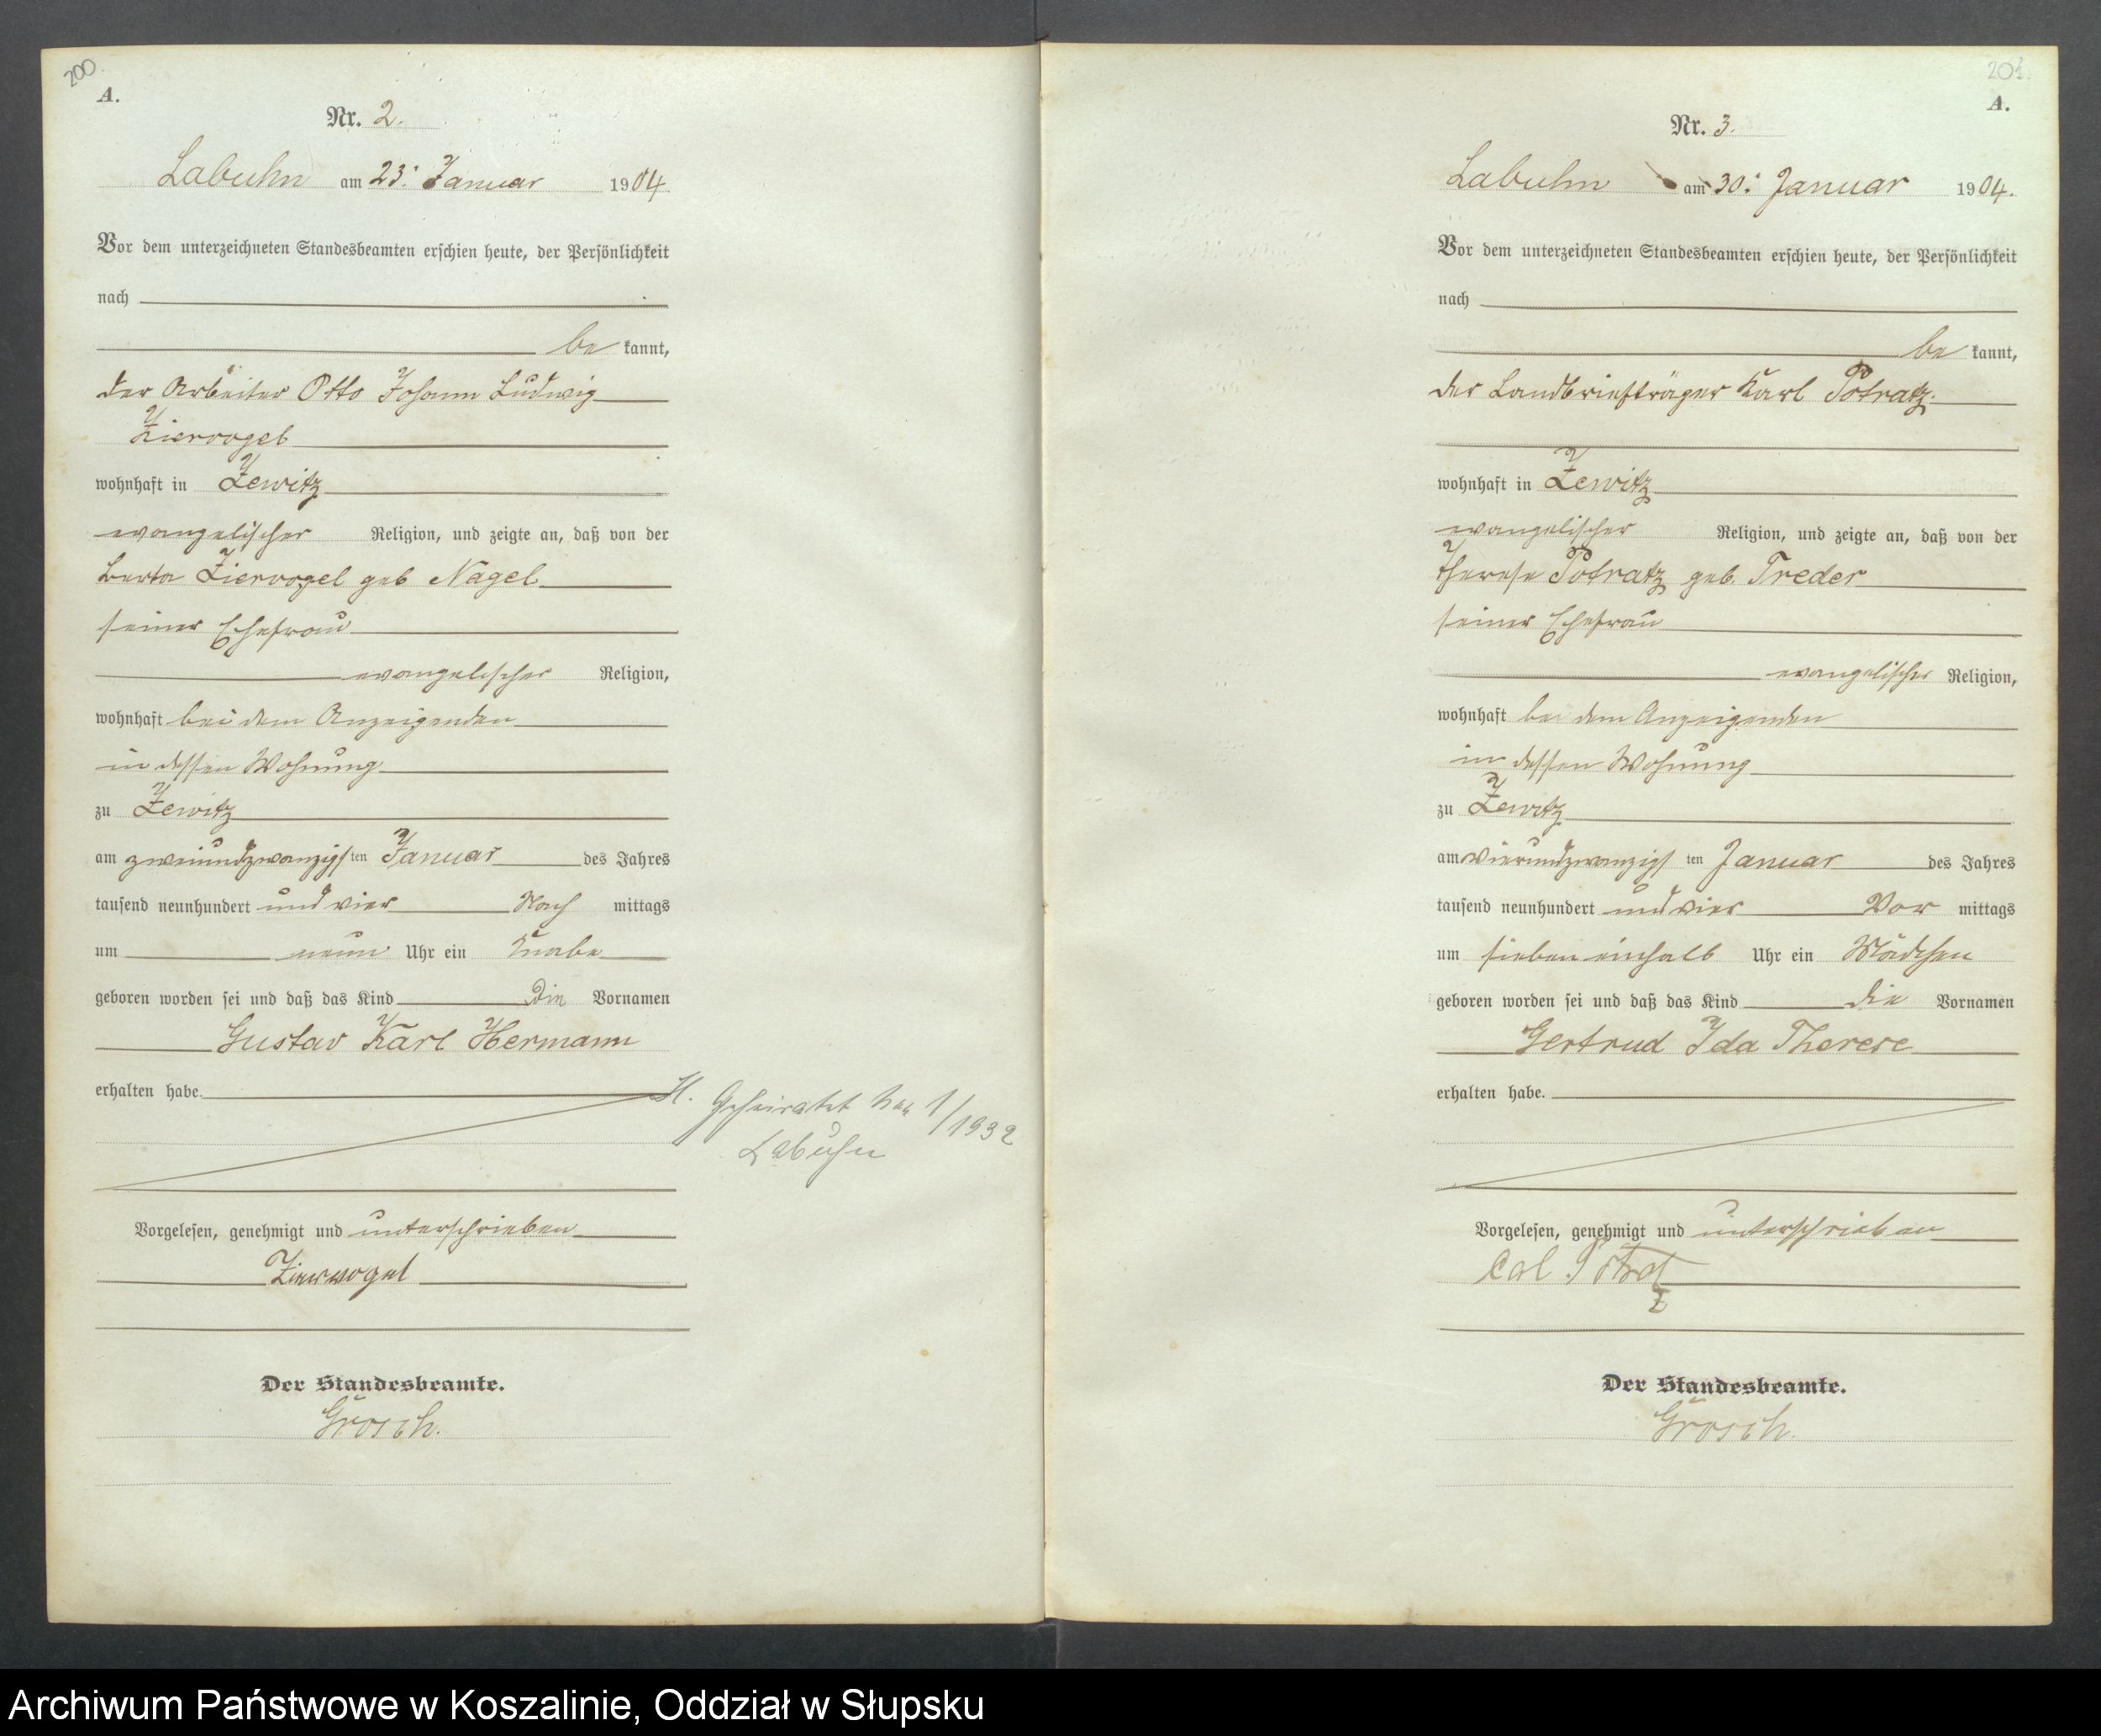 200.
A.
Nr. 2.
Labuhn am 23. Januar 1904.
Vor dem unterzeichneten Standesbeamten erschien heute, der Persönlichkeit
nach
be kannt,
der Arbeiter Otto Johann Ludwig
Ziervogel
wohnhaft in Zewitz
evangelischer Religion, und zeigte an, daß von der
Berta Ziervogel geb Nagel
seiner Ehefrau
evangelischer Religion,
wohnhaft bei dem Anzeigenden
in dessen Wohnung
zu Zewitz
am zweiundzwanzigsten Januar des Jahres
tausend neunhundert und vier Nach mittags
um neun Uhr ein Knabe
geboren worden sei und daß das Kind die Vornamen
Gustav Karl Hermann
erhalten habe.
H. Geheiratet 1/1932
Labuhn
Vorgelesen, genehmigt und unterschrieben
Ziervogel
Der Standesbeamte.
Grosch.
201.
A.
Nr. 3.
Labuhn am 30. Januar 1904.
Vor dem unterzeichneten Standesbeamten erschien heute, der Persönlichkeit
nach
be kannt,
der Landbriefträger Karl Potratz.
wohnhaft in Zewitz
evangelischer Religion, und zeigte an, daß von der
Therese Potratz geb. Treder
seiner Ehefrau
evangelischer Religion,
wohnhaft bei dem Anzeigenden
in dessen Wohnung
zu Zewitz
am vierundzwanzigsten Januar des Jahres
tausend neunhundert und vier Vor mittags
um sieben einhalb Uhr ein Mädchen
geboren worden sei und daß das Kind die Vornamen
Gertrud Ida Therese
erhalten habe.
Vorgelesen, genehmigt und unterschrieben
Cal Potratz
Der Standesbeamte.
Grosch.
Archiwum Państwowe w Koszalinie, Oddział w Słupsku